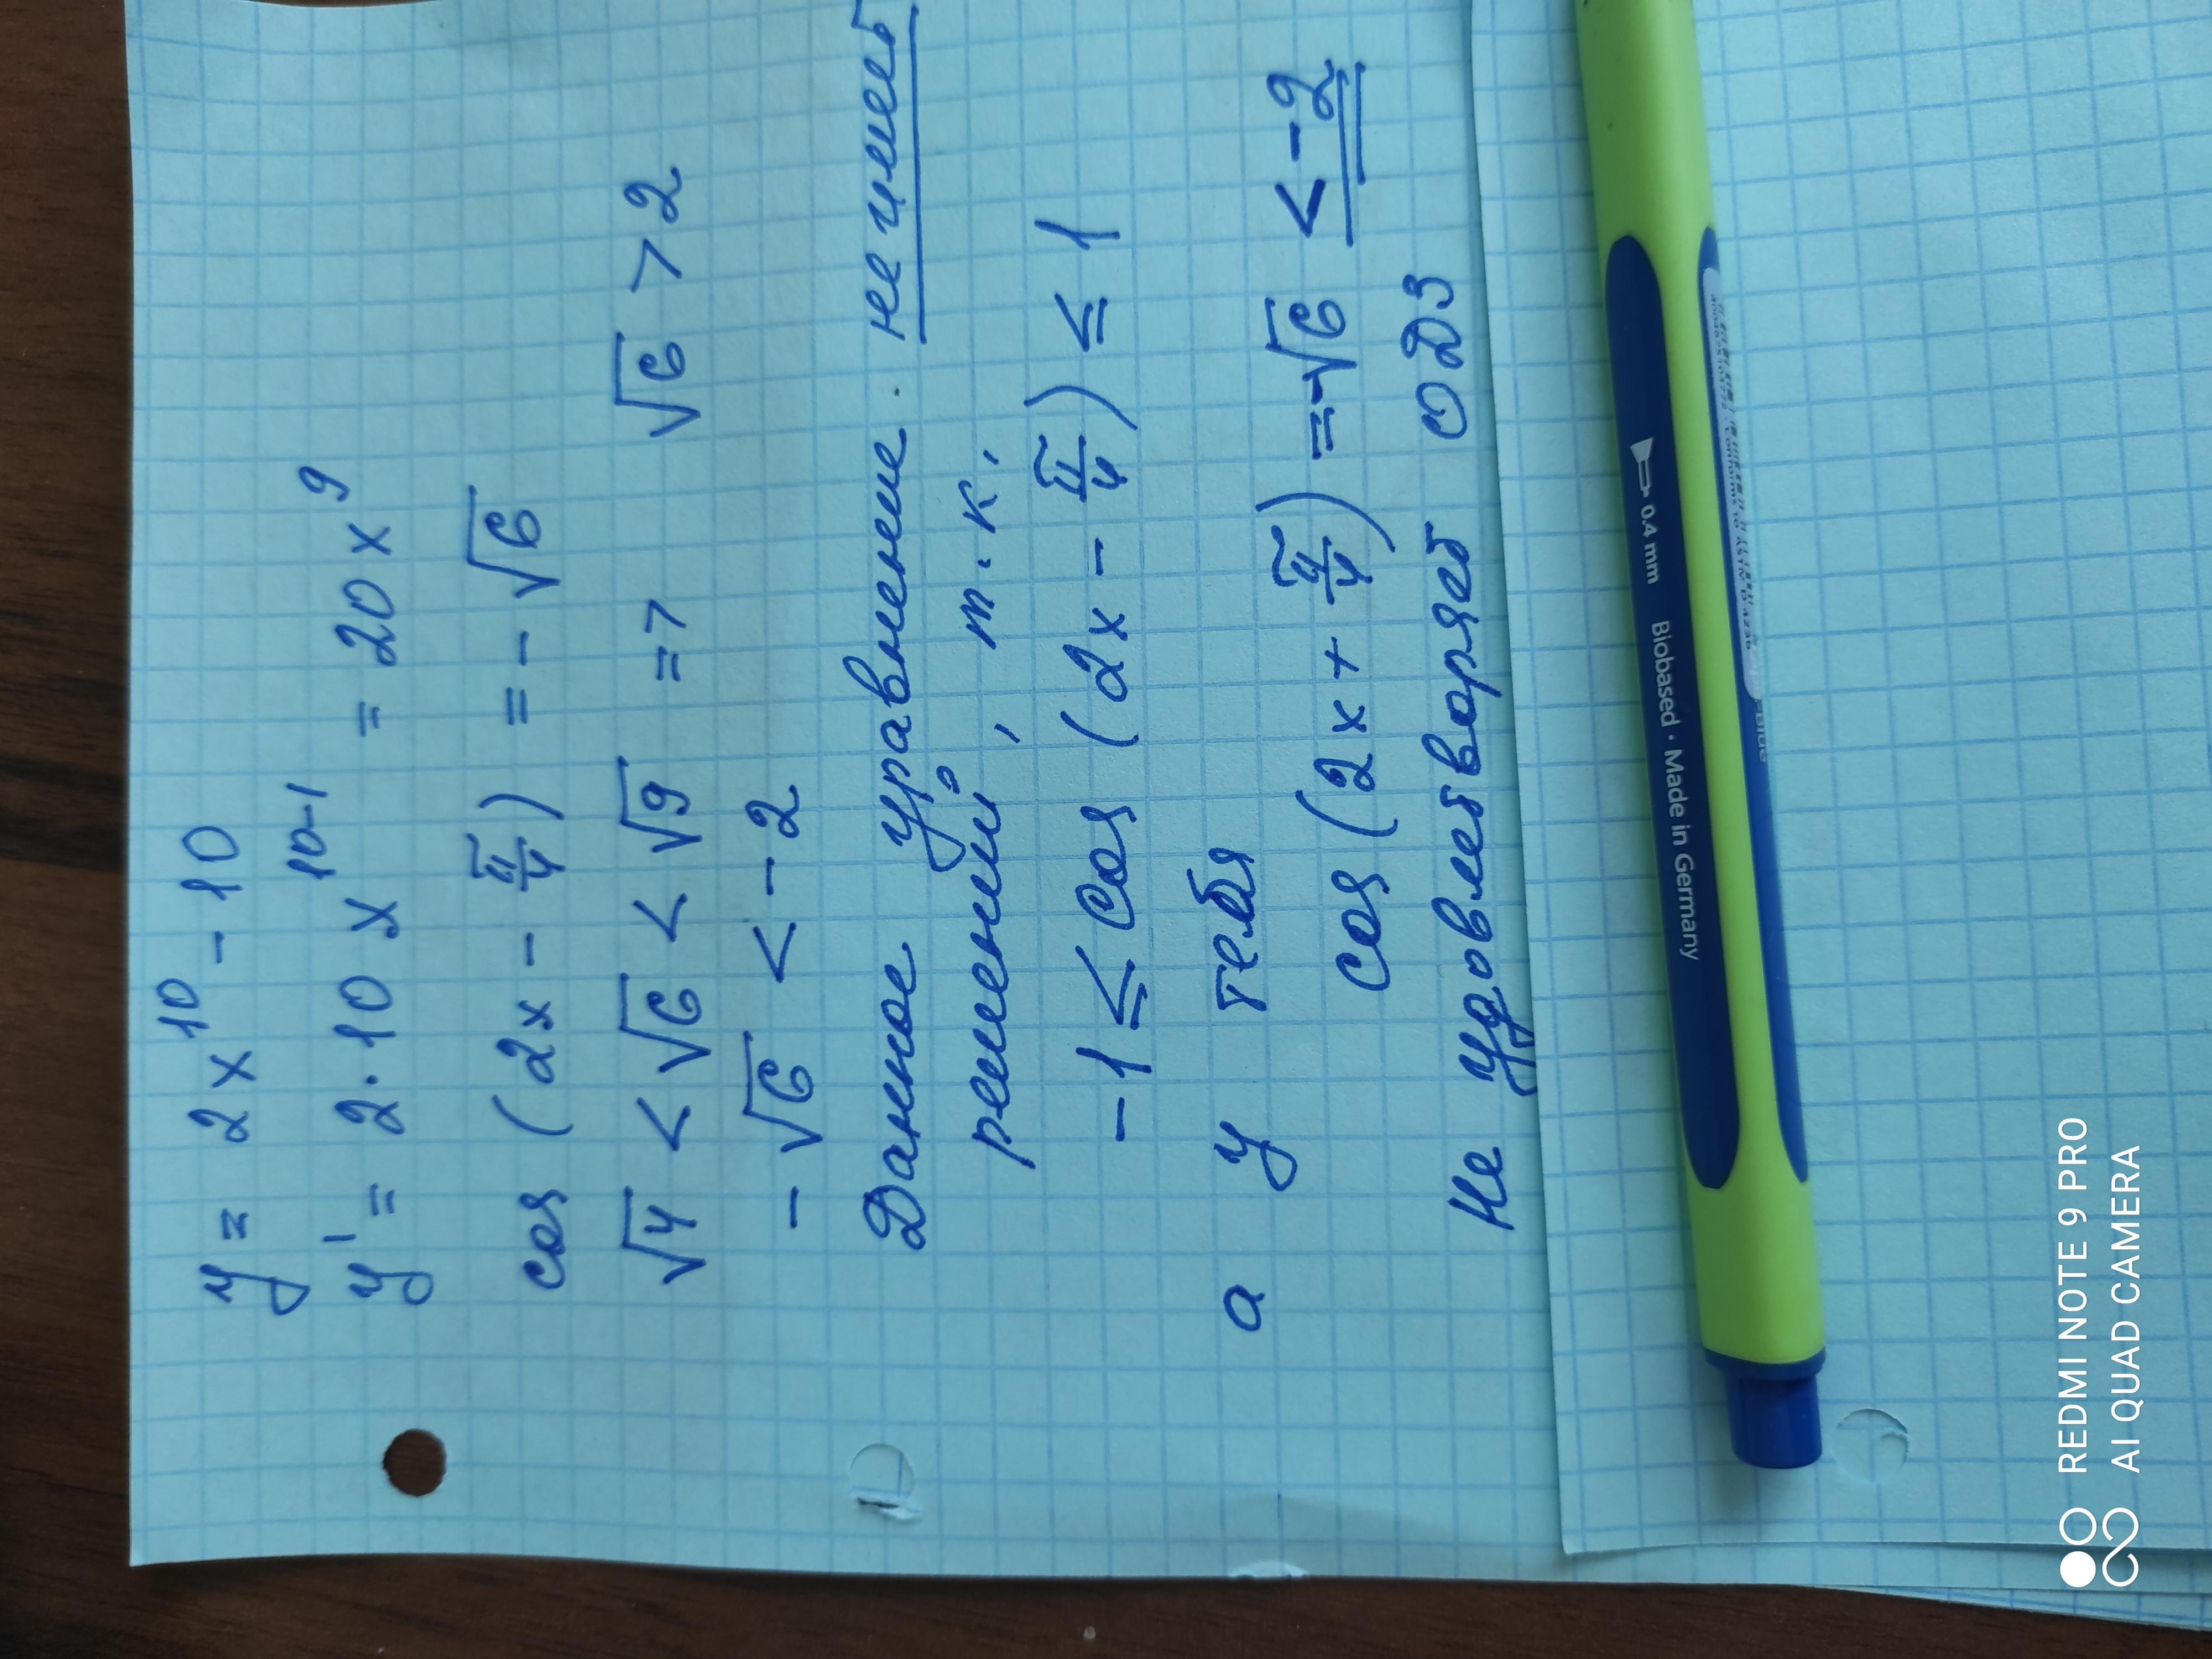 y = 2x¹⁰ - 10
y' = 2·10 x¹⁰⁻¹ = 20x⁹
cos (2x - π/4) = -√6
√4 < √6 < √9 => √6 > 2
-√6 < -2
Данное уравнение. не имеет
решений, т.к.
-1 ≤ cos (2x - π/4) ≤ 1
а у тебя
cos (2x + π/4) = -√6 < -2
Не удовлетворяет ОДЗ
0.4 mm Biobased · Made in Germany
Blue
REDMI NOTE 9 PRO
AI QUAD CAMERA